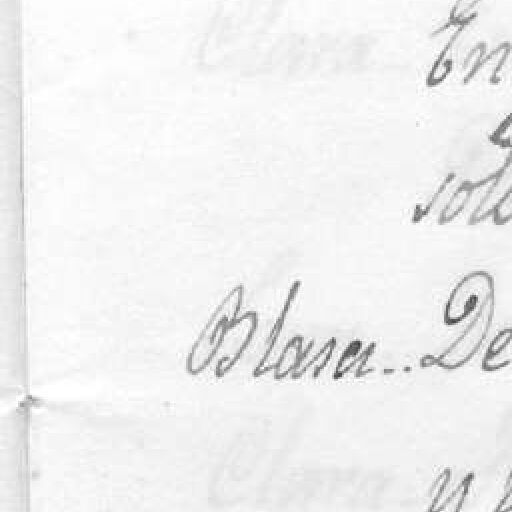 En
sol
Blasa.. De
y